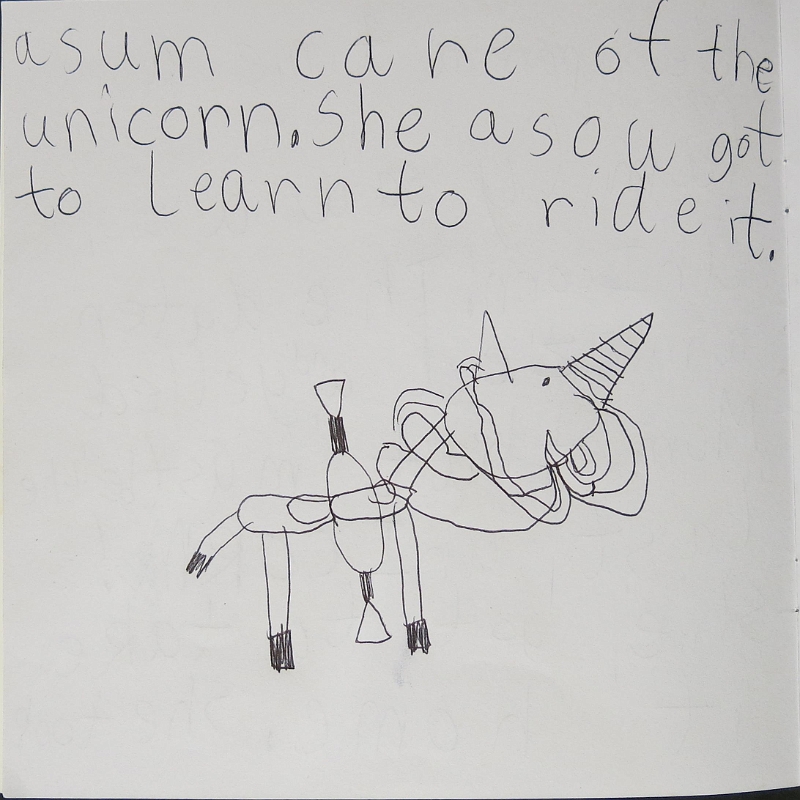 asum care of the
unicorn. She asow got
to learn to ride it.